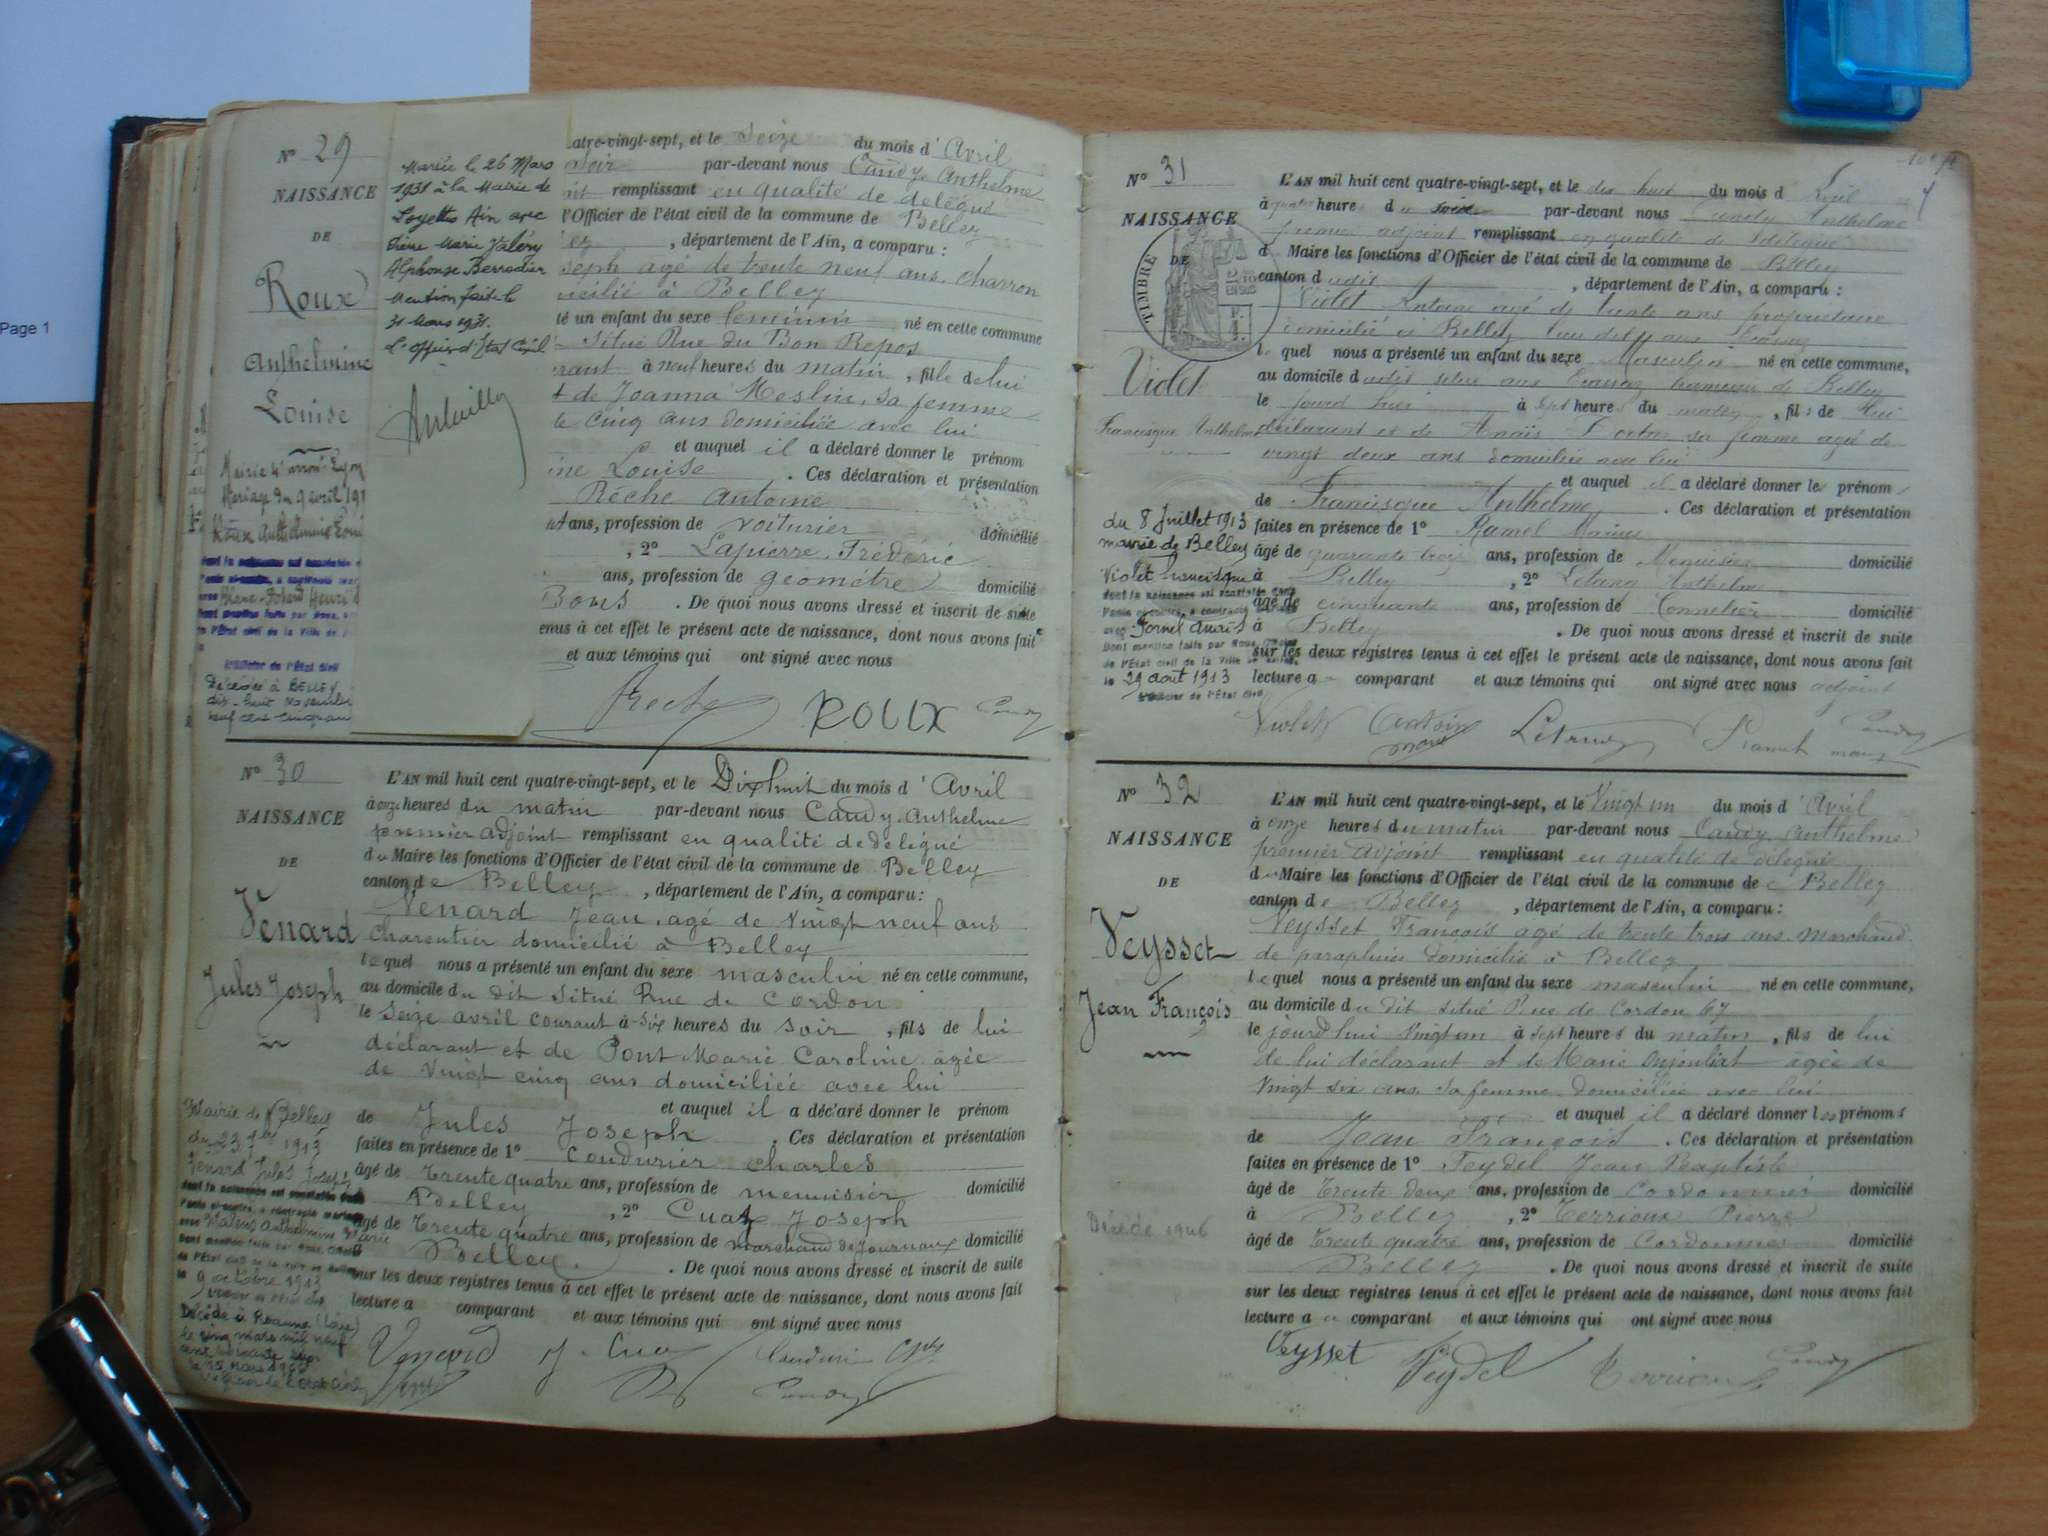 Page 1
N° 29
NAISSANCE
DE
Roux
Anthelmine
Louise
Mairie 4e arrond Lyon
Mariage du 9 avril 191
Roux Anthelmine Loui
dont la naissance est constatée
Blanc Henri
L'Officier de l'État Civil
Décédée à BELLEY
dix-huit novembre
neuf cent cinquan
Mariée le 26 Mars
1931 à la Mairie de
Loyettes Ain avec
Marie Valéry
Alphonse Berrodier
Mention faite le
31 Mars 1931.
L'Officier d'État Civil
atre-vingt-sept, et le Seize du mois d' Avril
Soir par-devant nous Caudy Anthelme
int remplissant en qualité de délégué
l'Officier de l'état civil de la commune de Belley
ey , département de l'Ain, a comparu :
seph agé de trente neuf ans, charron
icilié à Belley
té un enfant du sexe féminin né en cette commune
situé Rue du Bon Repos
rant à neuf heures du matin , fille de lui
t de Joanna Meslin, sa femme
te cinq ans domiciliée avec lui
et auquel il a déclaré donner le prénom
ine Louise . Ces déclaration et présentation
Rèche Antoine
ans, profession de voiturier domicilié
, 2° Lapierre Frédéric
ans, profession de géomètre domicilié
Bons . De quoi nous avons dressé et inscrit de suite
enus à cet effet le présent acte de naissance, dont nous avons fait
et aux témoins qui ont signé avec nous
Reche ROUX Caudy
N° 30
NAISSANCE
DE
Venard
Jules Joseph
Mairie de Belley
du 23 7bre 1913
Venard Jules Joseph
dont la naissance est constatée
avec Anthelmine Marie
9 octobre 1913
Décédé à Roanne (Loire)
le cinq mars mil neuf
L'AN mil huit cent quatre-vingt-sept, et le Dix huit du mois d' Avril
à onze heures du matin par-devant nous Caudy Anthelme
premier adjoint remplissant en qualité de délégué
du Maire les fonctions d'Officier de l'état civil de la commune de Belley
canton de Belley , département de l'Ain, a comparu :
Venard Jean, agé de Vingt neuf ans
Charentier domicilié à Belley
lequel nous a présenté un enfant du sexe masculin né en cette commune,
au domicile du dit situé Rue de Cordon
le Seize avril courant à six heures du soir , fils de lui
déclarant et de Pont Marie Caroline agée
de Vingt cinq ans domiciliée avec lui
et auquel il a déclaré donner le prénom
de Jules Joseph . Ces déclaration et présentation
faites en présence de 1° Coudurier Charles
âgé de Trente quatre ans, profession de menuisier domicilié
Belley , 2° Cuaz Joseph
âgé de Trente quatre ans, profession de marchand de Journaux domicilié
à Belley. . De quoi nous avons dressé et inscrit de suite
sur les deux registres tenus à cet effet le présent acte de naissance, dont nous avons fait
lecture a comparant et aux témoins qui ont signé avec nous
Venard J. Cuaz Coudurier Ch Caudy
N° 31
NAISSANCE
DE
TIMBRE
Violet
Francisque Anthelme
du 8 Juillet 1913
mairie de Belley
Violet Francisque
dont la naissance est constatée dans
l'acte ci-contre, a contracté
avec
Dont mention faite par Nous,
de l'État civil de la Ville de Belley
le 29 août 1913
L'Officier de l'État Civil
L'AN mil huit cent quatre-vingt-sept, et le dix huit du mois d' Avril
à quatre heures du soir par-devant nous Caudy Anthelme
premier adjoint remplissant en qualité de délégué
d Maire les fonctions d'Officier de l'état civil de la commune de Belley
canton dudit , département de l'Ain, a comparu :
Violet Antoine agé de trente ans propriétaire
domicilié à Belley lieu dit aux
lequel nous a présenté un enfant du sexe Masculin né en cette commune,
au domicile dudit situé aux hameau de Belley
le jourd'hui à sept heures du matin , fils de lui
déclarant et de Anaïs sa femme agée de
vingt deux ans domiciliée avec lui
et auquel il a déclaré donner les prénoms
de Francisque Anthelme . Ces déclaration et présentation
faites en présence de 1° Ramel Marius
âgé de quarante trois ans, profession de Menuisier domicilié
à Belley , 2° Létang Anthelme
âgé de cinquante ans, profession de Tonnelier domicilié
à Belley . De quoi nous avons dressé et inscrit de suite
sur les deux registres tenus à cet effet le présent acte de naissance, dont nous avons fait
lecture a comparant et aux témoins qui ont signé avec nous adjoint
Violet Antoine Létang Ramel Caudy
N° 32
NAISSANCE
DE
Veysset
Jean François
Décédé 1906
L'AN mil huit cent quatre-vingt-sept, et le Vingt un du mois d' Avril
à onze heures du matin par-devant nous Caudy Anthelme
premier adjoint remplissant en qualité de délégué
du Maire les fonctions d'Officier de l'état civil de la commune de Belley
canton de Belley , département de l'Ain, a comparu :
Veysset François agé de trente trois ans. Marchand
de parapluies domicilié à Belley
lequel nous a présenté un enfant du sexe masculin né en cette commune,
au domicile du dit situé Rue de Cordon 67
le jourd'hui Vingt un à sept heures du matin , fils de lui
de lui déclarant et de Marie agée de
Vingt six ans, sa femme domiciliée avec lui
et auquel il a déclaré donner les prénoms
de Jean François . Ces déclaration et présentation
faites en présence de 1° Feydel Jean Baptiste
âgé de Trente deux ans, profession de Cordonnier domicilié
à Belley , 2° Terrioux Pierre
âgé de Trente quatre ans, profession de Cordonnier domicilié
Belley . De quoi nous avons dressé et inscrit de suite
sur les deux registres tenus à cet effet le présent acte de naissance, dont nous avons fait
lecture au comparant et aux témoins qui ont signé avec nous
Veysset Feydel Terrioux Caudy